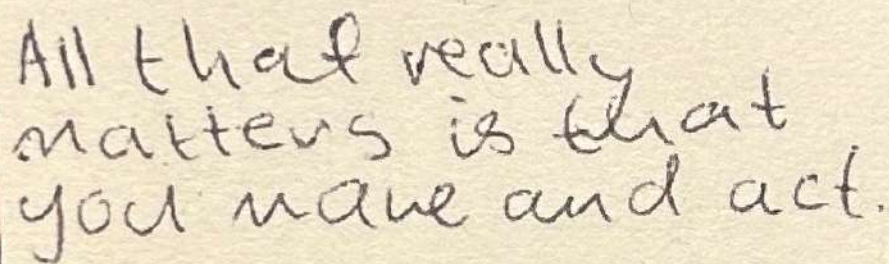 All that really
matters is that
you move and act.